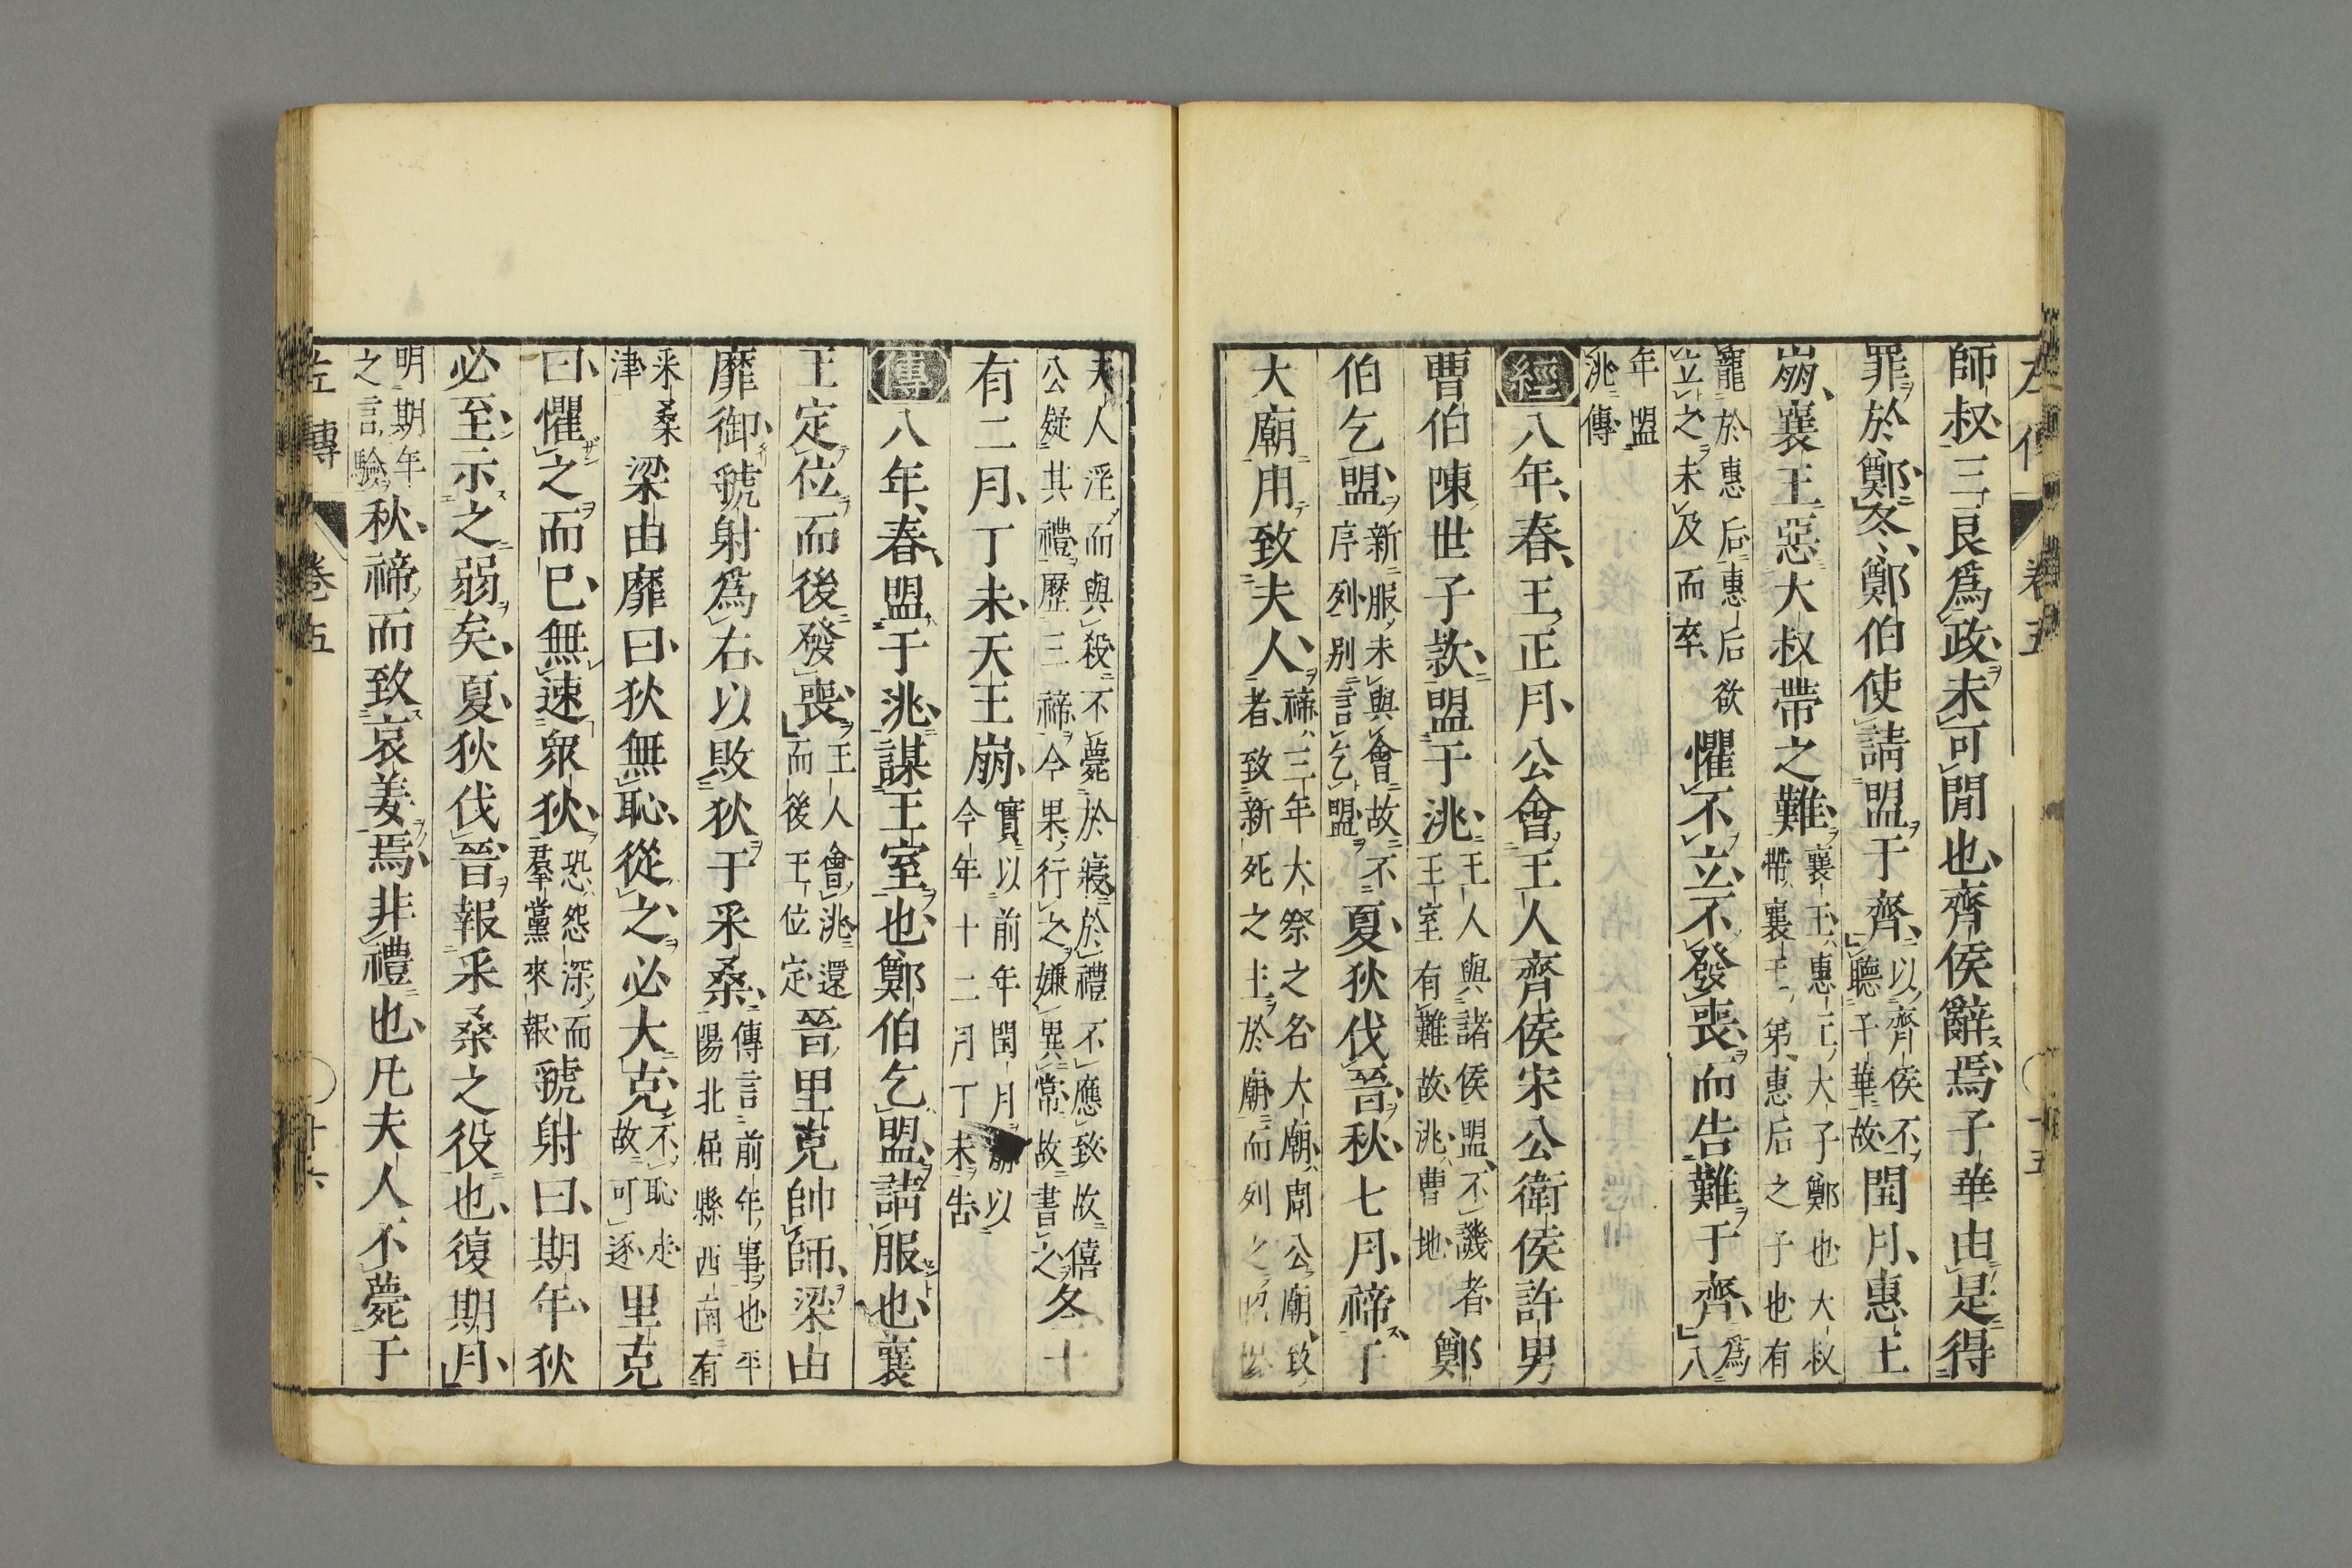 師叔三良爲政未可閒也齊侯辭焉子華由是得
罪於鄭冬鄭伯使請盟于齊以齊侯不聽子華故閏月惠王
崩襄王惡大叔帶之難襄王惠王大子鄭也大叔帶襄王弟惠后之子也有
寵於惠后惠后欲立之未及而卒懼不立不發喪而告難于齊爲八
年盟洮傳
經八年春王正月公會王人齊侯宋公衛侯許男
曹伯陳世子款盟于洮王人與諸侯盟不譏者王室有難故洮曹地鄭
伯乞盟新服未與會故不序列別言乞盟夏狄伐晉秋七月禘于
大廟用致夫人禘三年大祭之名大廟周公廟致者致新死之主於廟而列之
夫人淫而與殺不薨於寢於禮不應致故僖公疑其禮歷三禘今果行之嫌異常故書之冬十
有二月丁未天王崩實以前年閏月崩以今年十二月丁未告
傳八年春盟于洮謀王室也鄭伯乞盟請服也襄
王定位而後發喪王人會洮還而後王位定晉里克帥師梁由
靡御虢射爲右以敗狄于采桑傳言前年事也平陽北屈縣西南有
采桑津梁由靡曰狄無恥從之必大克不恥走故可逐里克
曰懼之而已無速衆狄恐怨深而羣黨來報虢射曰期年狄
必至示之弱矣夏狄伐晉報采桑之役也復期月
明期年之言驗秋禘而致哀姜焉非禮也凡夫人不薨于
左傳 卷五 十六